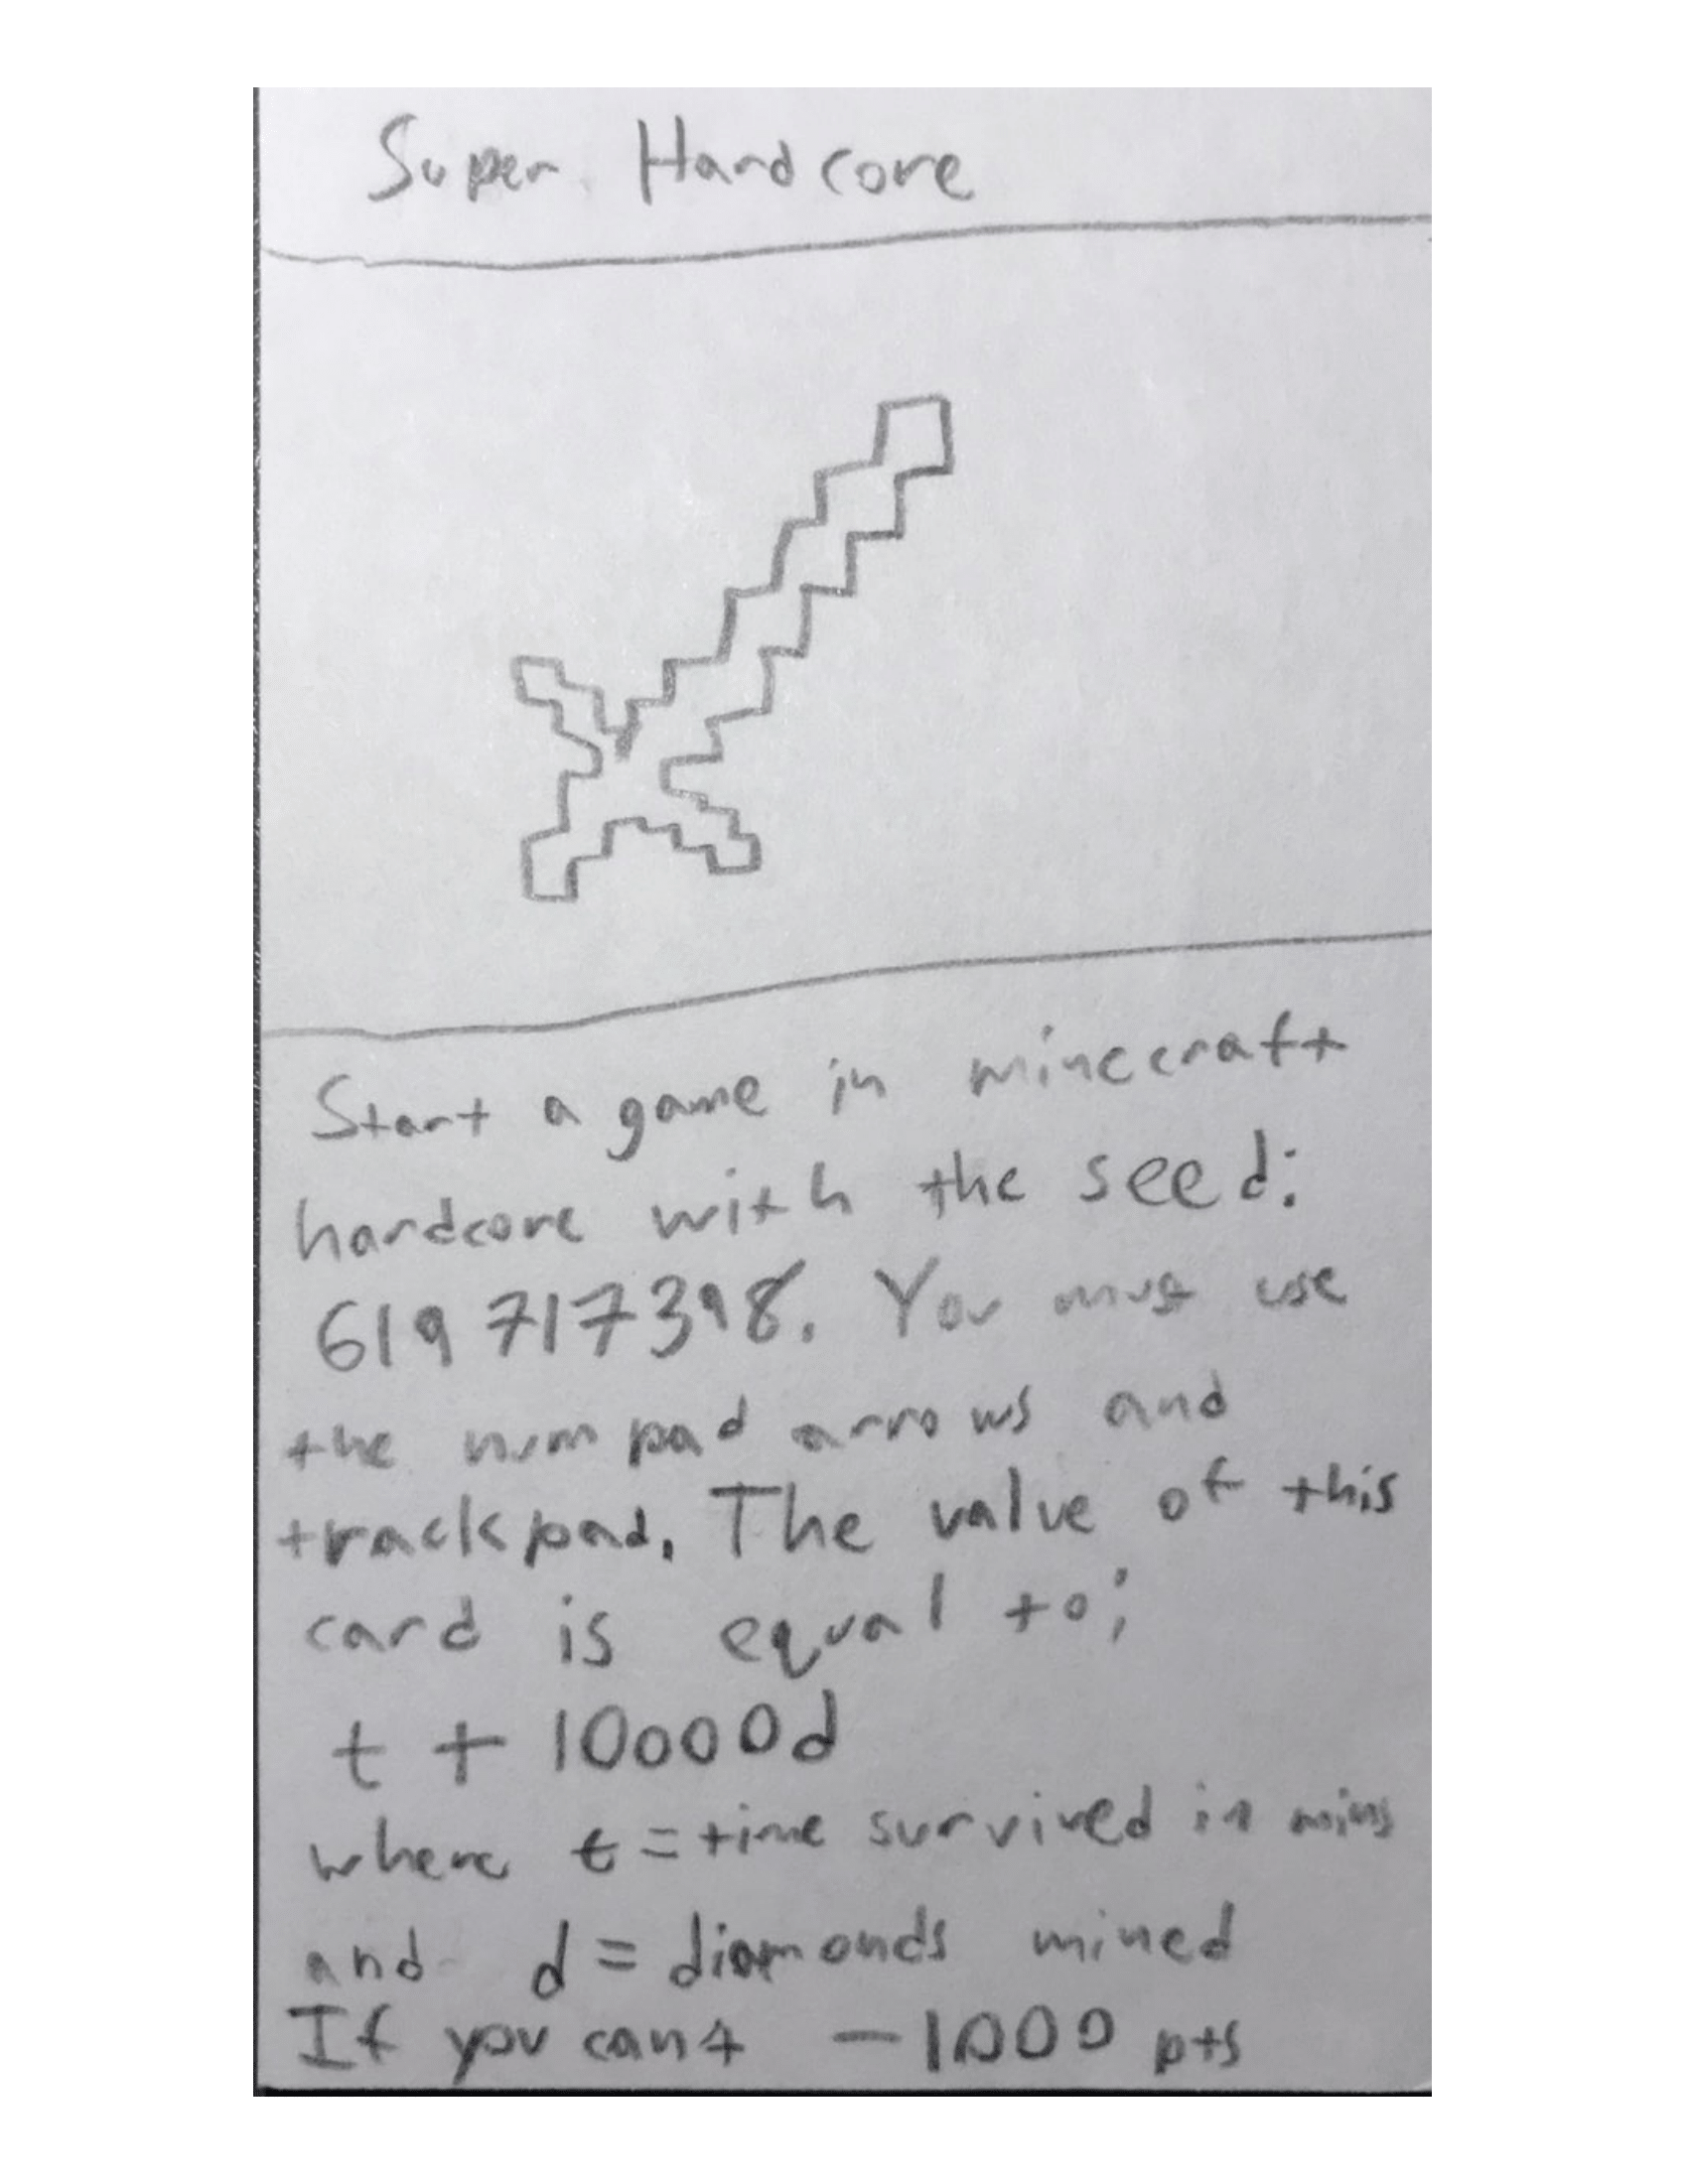 Super Hardcore
Start a game in minecraft
hardcore with the seed:
619717398. You must use
the numpad arrows and
trackpad. The value of this
card is equal to:
t + 10000d
where t = time survived in mins
and d = diamonds mined
If you cant -1000 pts